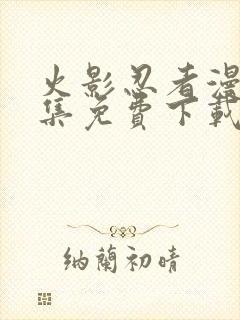 火影忍者漫
集免費下載
納蘭初晴